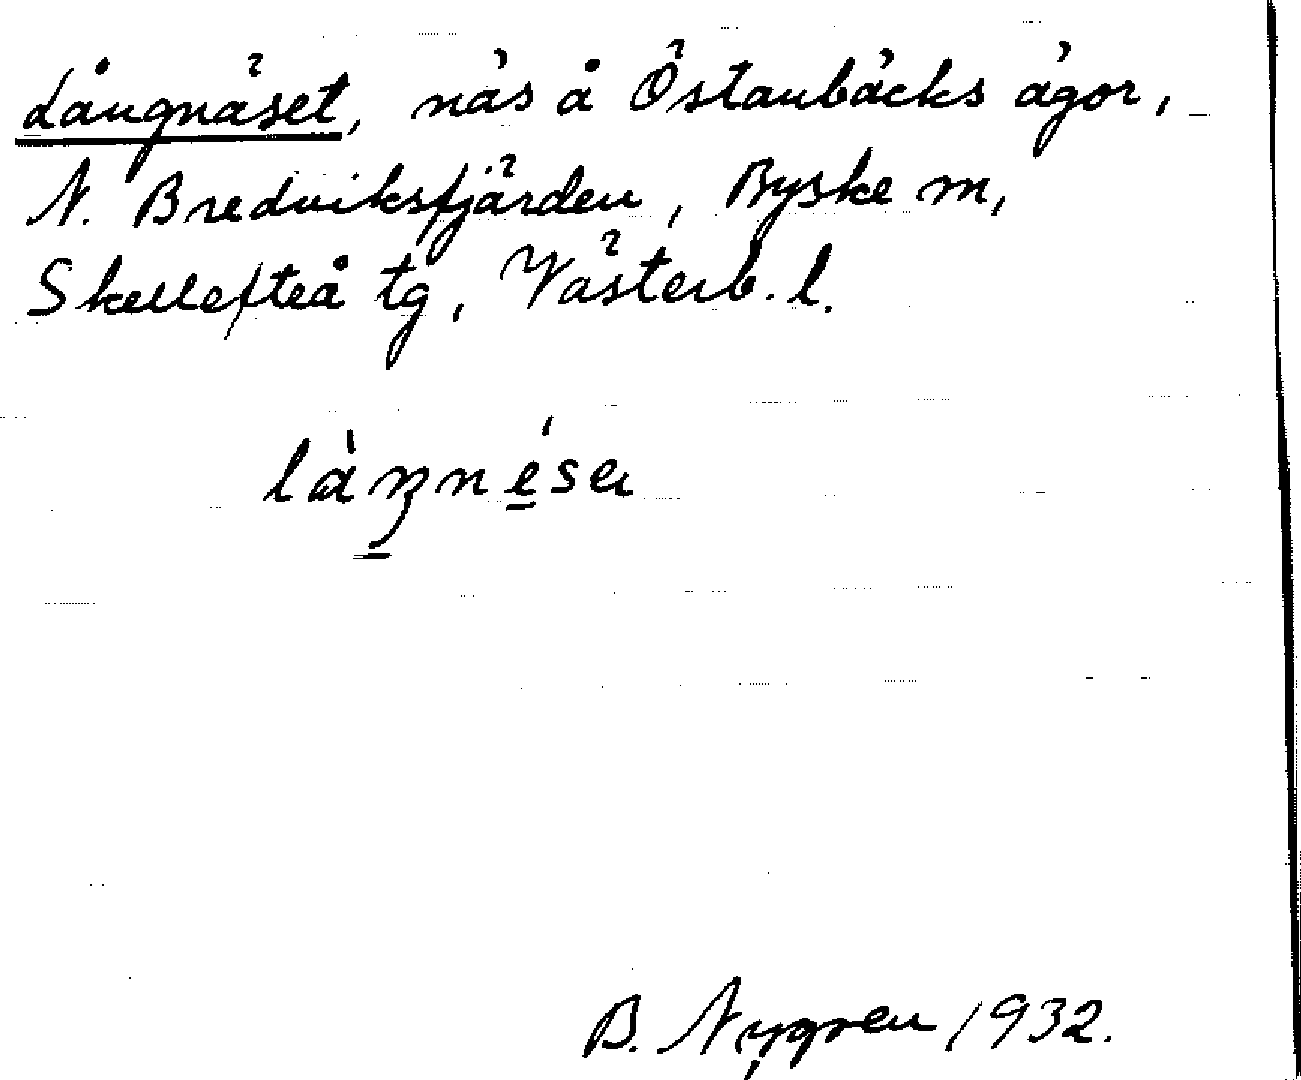 Långnäset, näs å Östanbäcks ägor,
N. Bredviksfjärden, Byske m,
Skellefteå tg, Västerb. l.
làŋnésa
B. Nygren 1932.